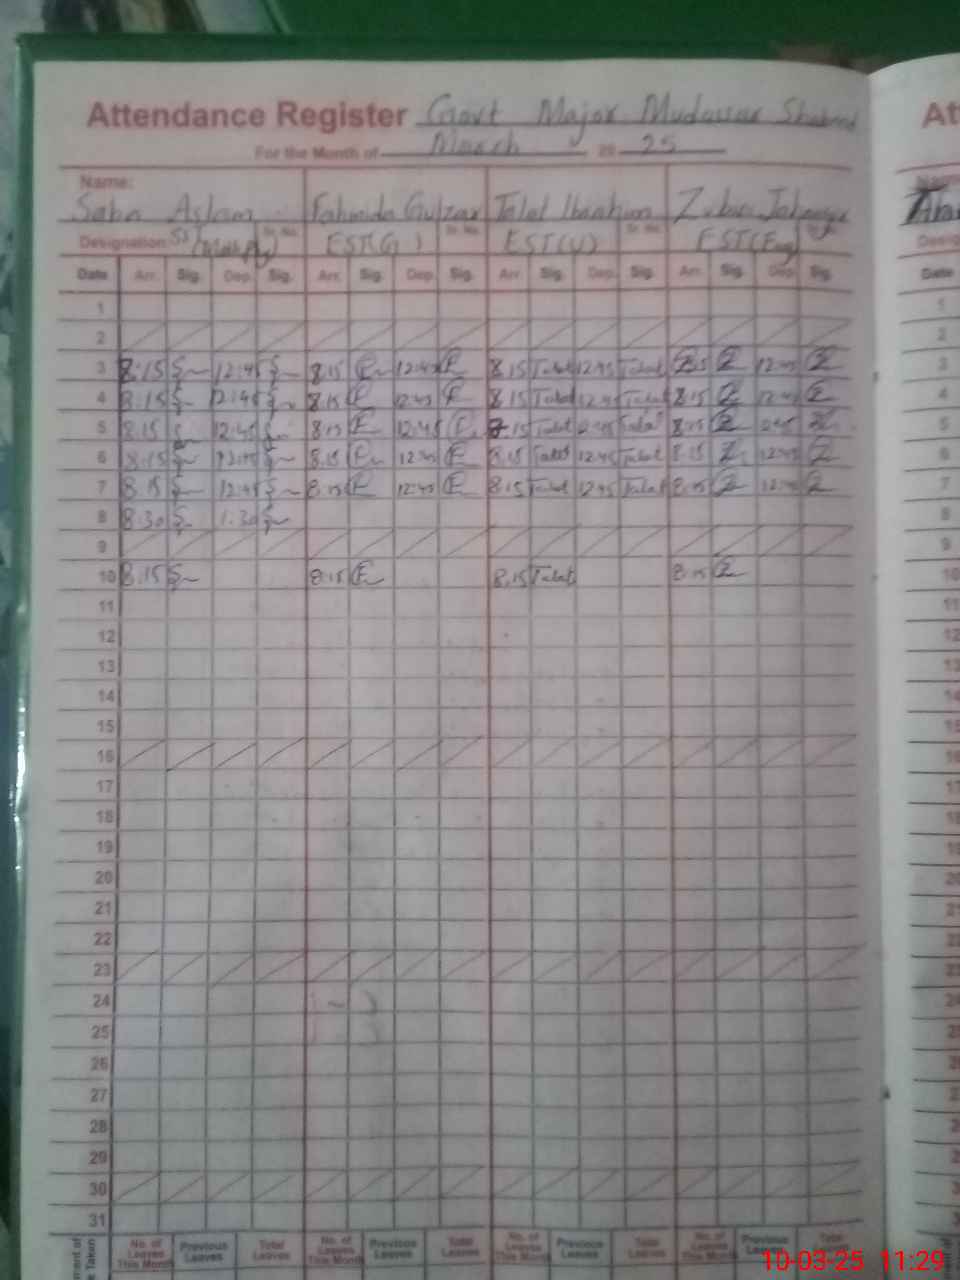 Attendance Register Govt Major Mudassar Shaheed
For the Month of March 20 25
Name:
Saba Aslam Fahmida Gulzar Talat Ibrahim
Designation: Sr. No. EST(G) Sr. No. EST(U) Sr. No. EST(Eng)
Date Arr. Sig. Dep. Sig. Arr. Sig. Dep. Sig. Arr. Sig. Dep. Sig. Arr. Sig. Dep. Sig.
1
2
3 8:15 12:45 8:15 12:45 8.15 Talat 12:45 Talat 12:45
4 8:15 12:45 8:15 12:45 8.15 Talat 12:45 Talat 8:15 12:45
5 8:15 12:45 8:15 12:45 8.15 Talat 12:45 Talat 8:15 12:45
6 8:15 12:45 8.15 12:45 8.15 Talat 12:45 Talat 8:15 12:45
7 8:15 12:45 8:15 12:45 8.15 Talat 12:45 Talat 8:15 12:45
8 8:30 1:30
9
10 8:15 8:15 8.15 Talat 8:15
11
12
13
14
15
16
17
18
19
20
21
22
23
24
25
26
27
28
29
30
31
No. of Leaves This Month Previous Leaves Total Leaves No. of Leaves This Month Previous Leaves Total Leaves No. of Leaves This Month Previous Leaves Total Leaves No. of Leaves This Month Previous Leaves Total Leaves
10-03-25 11:29